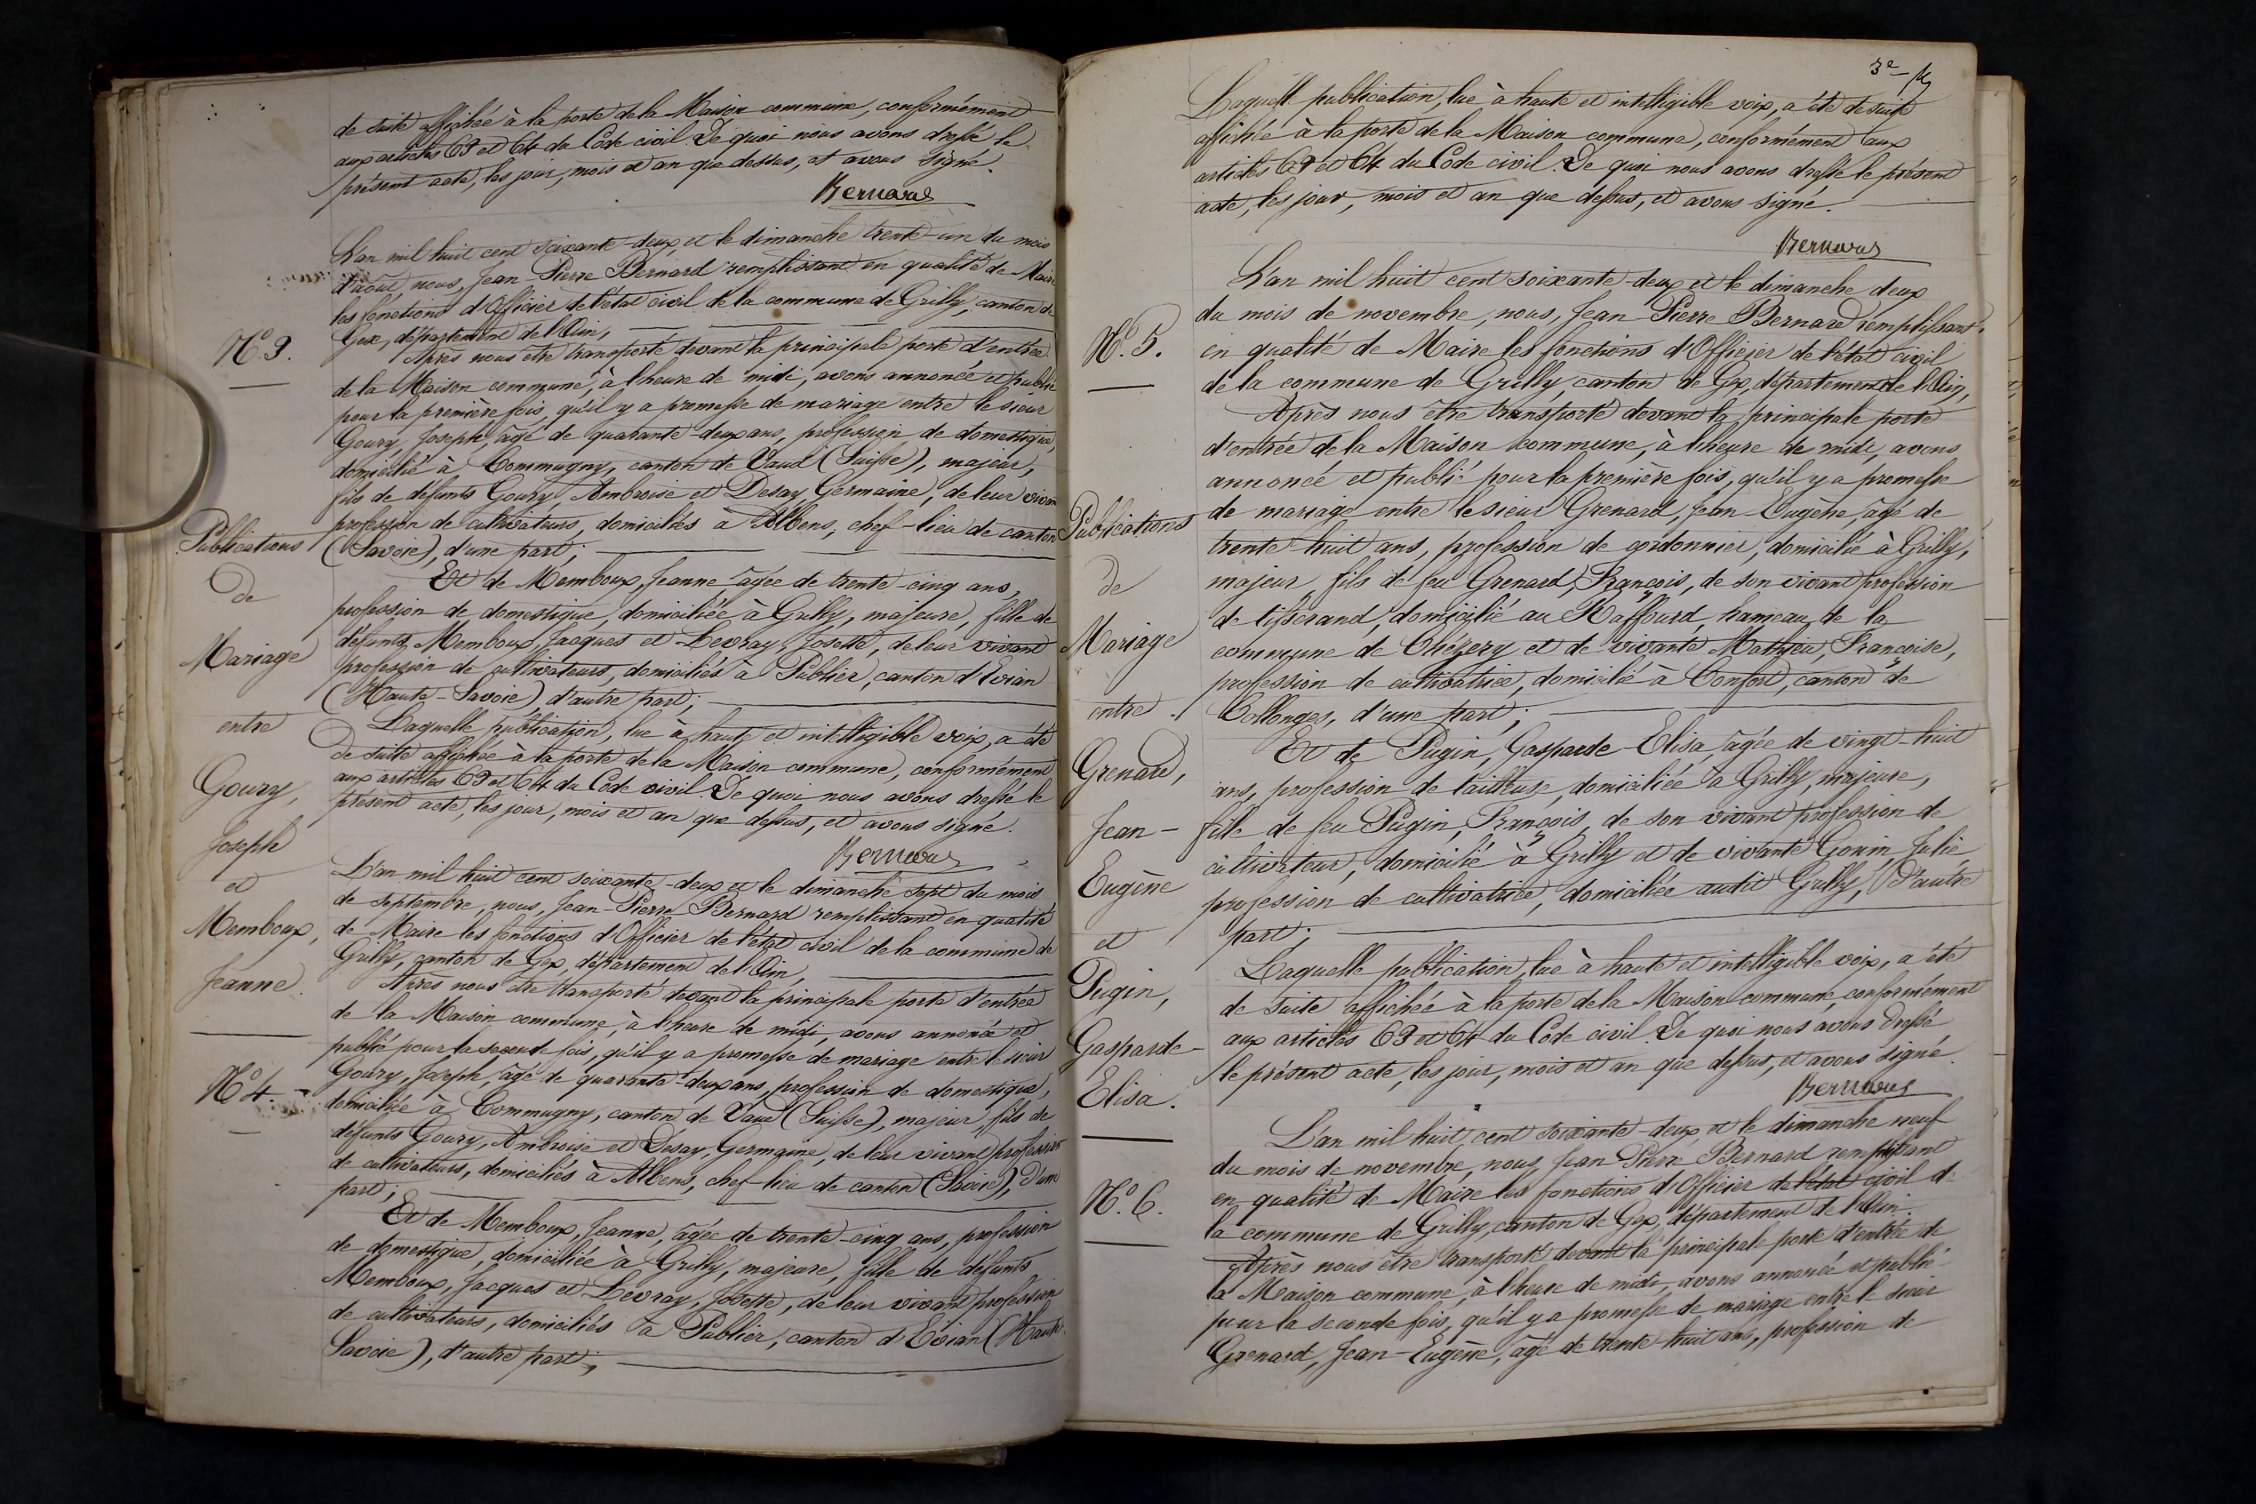 de suite affichée à la porte de la Maison commune, conformément
aux articles 63 et 64 du Code civil. De quoi nous avons dressé le
présent acte, les jour, mois et an que dessus, et avons signé.
Bernard
N.º 3.
Publications
de
Mariage
entre
Goury,
Joseph
et
Memboux,
Jeanne.
L'an mil huit cent soixante-deux, et le dimanche trente-un du mois
d'août nous, Jean Pierre Bernard remplissant en qualité de Maire
les fonctions d'Officier de l'état civil de la commune de Grilly, canton de
Gex, département de l'Ain,
Après nous être transporté devant la principale porte d'entrée
de la Maison commune, à l'heure de midi, avons annoncé et publié
pour la première fois, qu'il y a promesse de mariage entre le sieur
Goury, Joseph, âgé de quarante-deux ans, profession de domestique,
domicilié à Commugny, canton de Vaud (Suisse), majeur,
fils de défunts Goury Ambroise et Desay, Germaine, de leur vivant
profession de cultivateurs, domiciliés à Albens, chef-lieu de canton
(Savoie), d'une part;
Et de Memboux, Jeanne âgée de trente-cinq ans,
profession de domestique, domiciliée à Grilly, majeure, fille de
défunts Memboux, Jacques et Levray, Josette, de leur vivant
profession de cultivateurs, domiciliés à Publier, canton d'Evian
(Haute-Savoie), d'autre part;
Laquelle publication, lue à haute et intelligible voix, a été
de suite affichée à la porte de la Maison commune, conformément
aux articles 63 et 64 du Code civil. De quoi nous avons dressé le
présent acte, les jour, mois et an que dessus, et avons signé.
Bernard
N.º 4.
L'an mil huit cent soixante-deux et le dimanche sept du mois
de septembre, nous, Jean-Pierre Bernard remplissant en qualité
de Maire les fonctions d'Officier de l'état civil de la commune de
Grilly, canton de Gex, département de l'Ain,
Après nous être transporté devant la principale porte d'entrée
de la Maison commune, à l'heure de midi, avons annoncé et
publié pour la seconde fois, qu'il y a promesse de mariage entre le sieur
Goury, Joseph, âgé de quarante-deux ans, profession de domestique,
domiciliée à Commugny, canton de Vaud (Suisse), majeur, fils de
défunts Goury, Ambroise et Desay, Germaine, de leur vivant profession
de cultivateurs, domiciliés à Albens, chef-lieu de canton (Savoie), d'une
part;
Et de Memboux, Jeanne, âgée de trente-cinq ans, profession
de domestique, domiciliée à Grilly, majeure, fille de défunts
Memboux, Jacques et Levray, Josette, de leur vivant profession
de cultivateurs, domiciliés à Publier, canton d'Evian (Haute-
Savoie), d'autre part;
3e
Laquelle publication, lue à haute et intelligible voix, a été de suite
affichée à la porte de la Maison commune, conformément aux
articles 63 et 64 du Code civil. De quoi nous avons dressé le présent
acte, les jour, mois et an que dessus, et avons signé.
Bernard
N.º 5.
Publications
de
Mariage
entre
Grenard,
Jean-
Eugène
et
Pugin,
Gasparde-
Elisa.
L'an mil huit cent soixante-deux et le dimanche deux
du mois de novembre, nous, Jean-Pierre Bernard remplissant
en qualité de Maire les fonctions d'Officier de l'état civil
de la commune de Grilly, canton de Gex, département de l'Ain,
Après nous être transporté devant la principale porte
d'entrée de la Maison commune, à l'heure de midi, avons
annoncé et publié pour la première fois, qu'il y a promesse
de mariage entre le sieur Grenard, Jean-Eugène, âgé de
trente-huit ans, profession de cordonnier, domicilié à Grilly,
majeur, fils de feu Grenard, François, de son vivant profession
de tisserand, domicilié au Raffourd, hameau de la
commune de Chézery et de vivante Mathieu, Françoise,
profession de cultivatrice, domicilié à Confort, canton de
Collonges, d'une part;
Et de Pugin, Gasparde-Elisa, âgée de vingt-huit
ans, profession de tailleuse, domiciliée à Grilly, majeure,
fille de feu Pugin, François, de son vivant profession de
cultivateur, domicilié à Grilly et de vivante Gonin Julie
profession de cultivatrice, domiciliée audit Grilly, d'autre
part;
Laquelle publication, lue à haute et intelligible voix, a été
de suite affichée à la porte de la Maison commune, conformément
aux articles 63 et 64 du Code civil. De quoi nous avons dressé
le présent acte, les jour, mois et an que dessus, et avons signé.
Bernard
N.º 6.
L'an mil huit cent soixante-deux et le dimanche neuf
du mois de novembre, nous, Jean Pierre Bernard remplissant
en qualité de Maire les fonctions d'Officier de l'état civil de
la commune de Grilly, canton de Gex, département de l'Ain.
Après nous être transporté devant la principale porte d'entrée de
la Maison commune, à l'heure de midi, avons annoncé et publié
pour la seconde fois, qu'il y a promesse de mariage entre le sieur
Grenard, Jean-Eugène, âgé de trente-huit ans, profession de